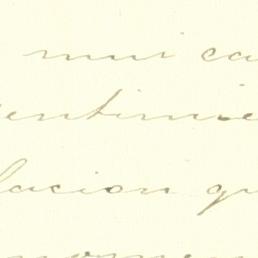 mui ca
entimie
lacion qu